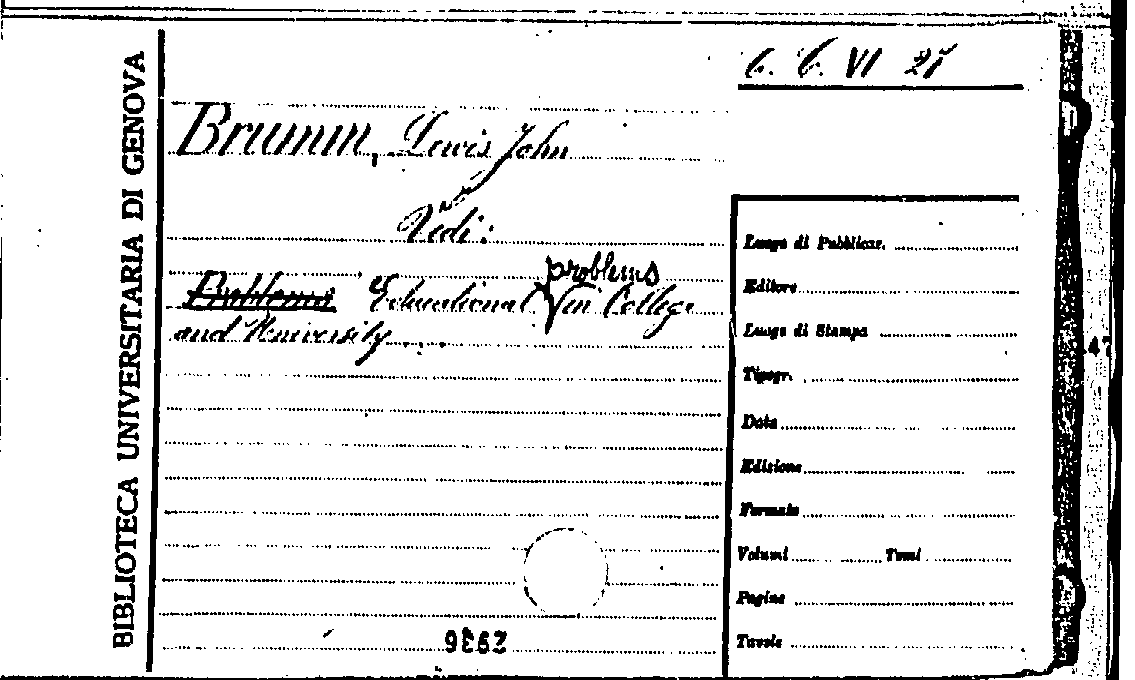 BIBLIOTECA UNIVERSITARIA DI GENOVA
C. C. VI 27
Brumm, Lewis John
Vedi:
problems
Problems Educational in College
and University
Luogo di Pubblicaz.
Editore
Luogo di Stampa
Tipogr.
Data
Edizione
Formato
Volumi Tomi
Pagine
Tavole
2936